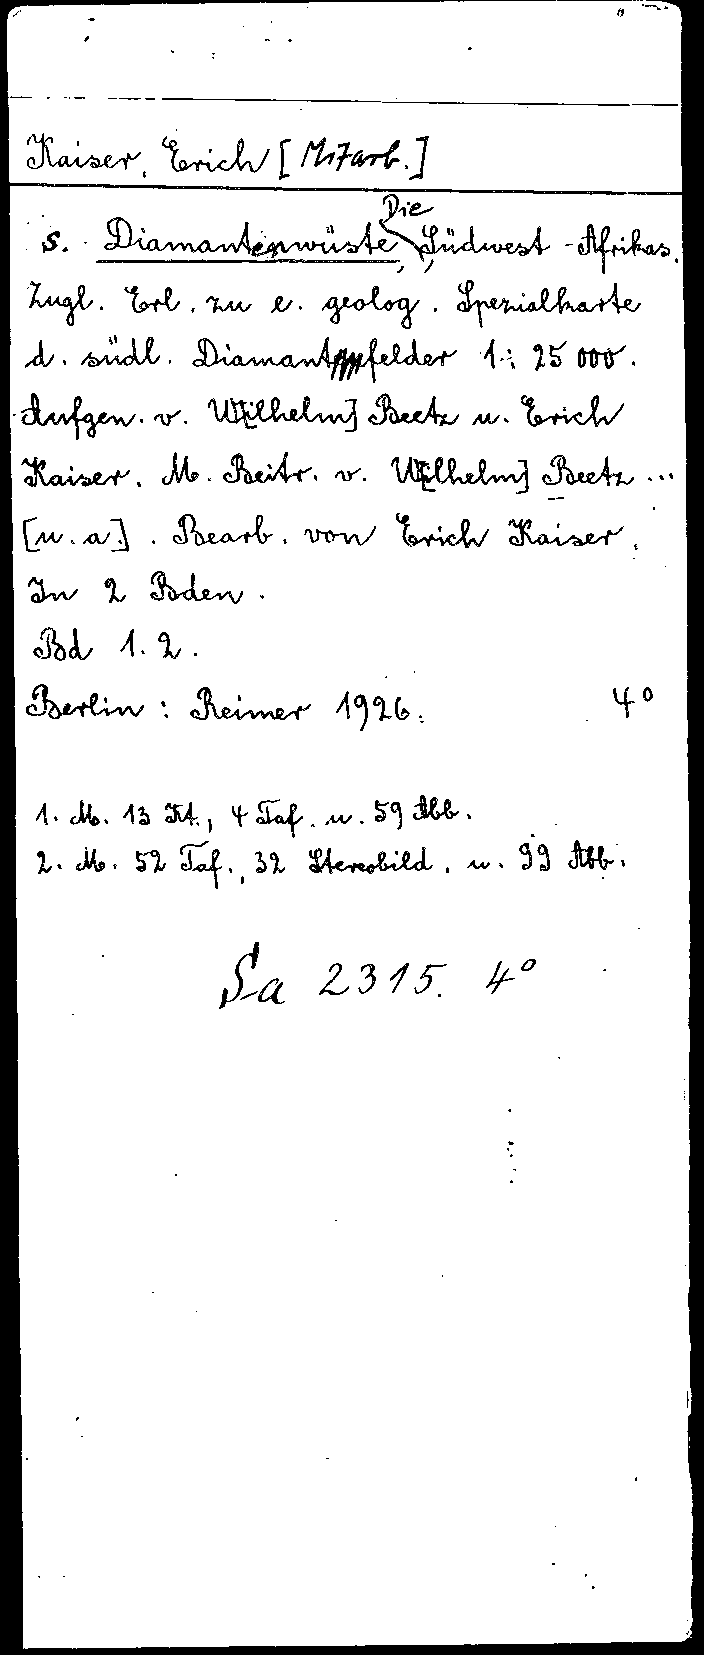 Kaiser, Erich [Mitarb.]
s. Diamantenwüste, Die, Südwest-Afrikas.
Zugl. Erl. zu e. geolog. Spezialkarte
d. südl. Diamantfelder 1:25 000.
Aufgen. v. W[ilhelm] Beetz u. Erich
Kaiser. M. Beitr. v. W[ilhelm] Beetz ...
[u. a.]. Bearb. von Erich Kaiser.
In 2 Bden.
Bd 1. 2.
Berlin: Reimer 1926. 4°
1. M. 13 Kt., 4 Taf. u. 59 Abb.
2. M. 52 Taf., 32 Stereobild. u. 99 Abb.
Sa 2315. 4°